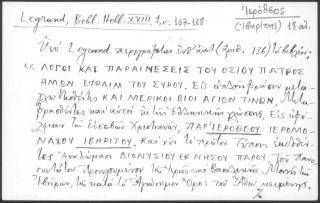 Legrand, Bibl. Hell. XVIII, 1, σ. 167-168
Ἱερόθεος
(Ἰβηρίτης) 18 αἰ.
Ὑπὸ Legrand περιγράφεται (ἀριθ. 136) τὸ βιβλίον:
"ΛΟΓΟΙ ΚΑΙ ΠΑΡΑΙΝΕΣΕΙΣ ΤΟΥ ΟΣΙΟΥ ΠΑΤΡΟΣ
ΗΜΩΝ ΕΦΡΑΙΜ ΤΟΥ ΣΥΡΟΥ. Εἰς ἁπλῆν φράσιν μετα-
γλωττισθέντες ΚΑΙ ΜΕΡΙΚΟΙ ΒΙΟΙ ΑΓΙΩΝ ΤΙΝΩΝ. Μετα-
φρασθέντες καὶ αὐτοὶ ἐκ τῆς Ἑλληνικῆς γλώσσης. Εἰς ὠφέ-
λειαν τῶν Εὐσεβῶν Χριστιανῶν, ΠΑΡ' ΙΕΡΟΘΕΟΥ ΙΕΡΟΜΟ-
ΝΑΧΟΥ ΙΒΗΡΙΤΟΥ. Καὶ νῦν τὸ πρῶτον Τύποις ἐκδοθέν-
τες Ἀναλώμασι ΔΙΟΝΥΣΙΟΥ ΕΚ ΝΗΣΟΥ ΠΑΡΟΥ. Τοῦ Πανο-
σιωτάτου Προηγουμένου τῆς Ἱερᾶς καὶ Βασιλικῆς Μονῆς τῶν
Ἰβήρων, τῆς κατὰ τὸ Ἁγιώνυμον Ὄρος τοῦ Ἄθω κειμένης.